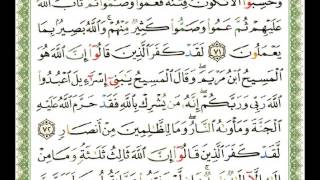 وَحَسِبُوٓا۟ أَلَّا تَكُونَ فِتْنَةٌ فَعَمُوا۟ وَصَمُّوا۟ ثُمَّ تَابَ ٱللَّهُ
عَلَيْهِمْ ثُمَّ عَمُوا۟ وَصَمُّوا۟ كَثِيرٌ مِّنْهُمْ ۚ وَٱللَّهُ بَصِيرٌۢ بِمَا
يَعْمَلُونَ ﴿٧١﴾ لَقَدْ كَفَرَ ٱلَّذِينَ قَالُوٓا۟ إِنَّ ٱللَّهَ هُوَ
ٱلْمَسِيحُ ٱبْنُ مَرْيَمَ ۖ وَقَالَ ٱلْمَسِيحُ يَٰبَنِىٓ إِسْرَٰٓءِيلَ ٱعْبُدُوا۟
ٱللَّهَ رَبِّى وَرَبَّكُمْ ۖ إِنَّهُۥ مَن يُشْرِكْ بِٱللَّهِ فَقَدْ حَرَّمَ ٱللَّهُ عَلَيْهِ
ٱلْجَنَّةَ وَمَأْوَىٰهُ ٱلنَّارُ ۖ وَمَا لِلظَّٰلِمِينَ مِنْ أَنصَارٍ ﴿٧٢﴾
لَّقَدْ كَفَرَ ٱلَّذِينَ قَالُوٓا۟ إِنَّ ٱللَّهَ ثَالِثُ ثَلَٰثَةٍ ۘ وَمَا